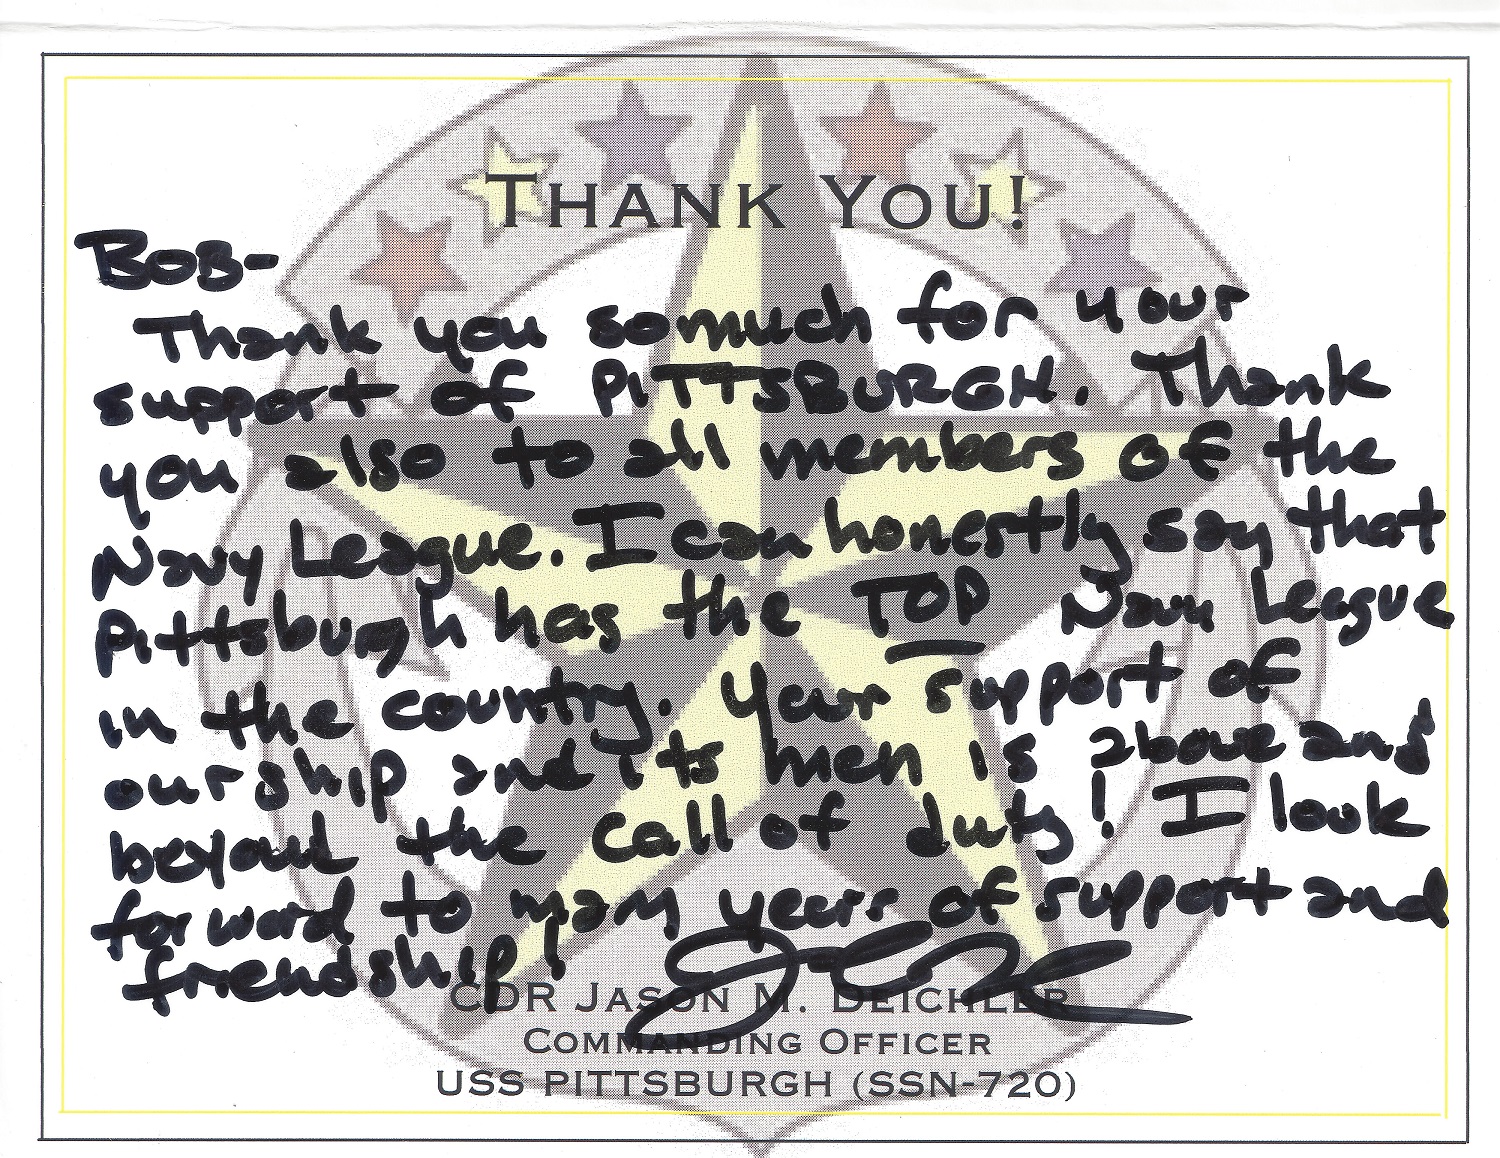 THANK YOU!
BOB-
Thank you so much for your
support of PITTSBURGH. Thank
you also to all members of the
Navy League. I can honestly say that
Pittsburgh has the TOP Navy League
in the country. Your support of
our ship and its men is above and
beyond the call of duty! I look
forward to many years of support and
friendship!
CDR JASON M. DEICHLER
COMMANDING OFFICER
USS PITTSBURGH (SSN-720)